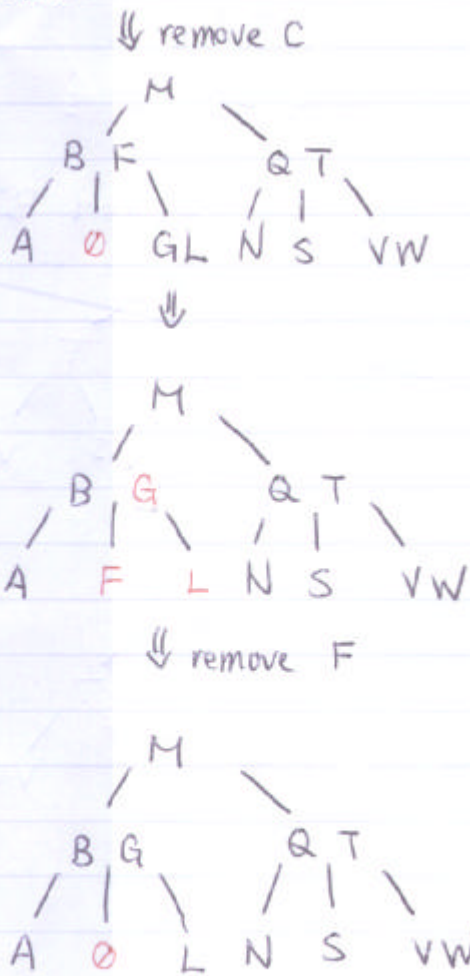 ⇓ remove C
M
B F Q T
A Ø GL N S VW
⇓
M
B G Q T
A F L N S VW
⇓ remove F
M
B G Q T
A Ø L N S VW